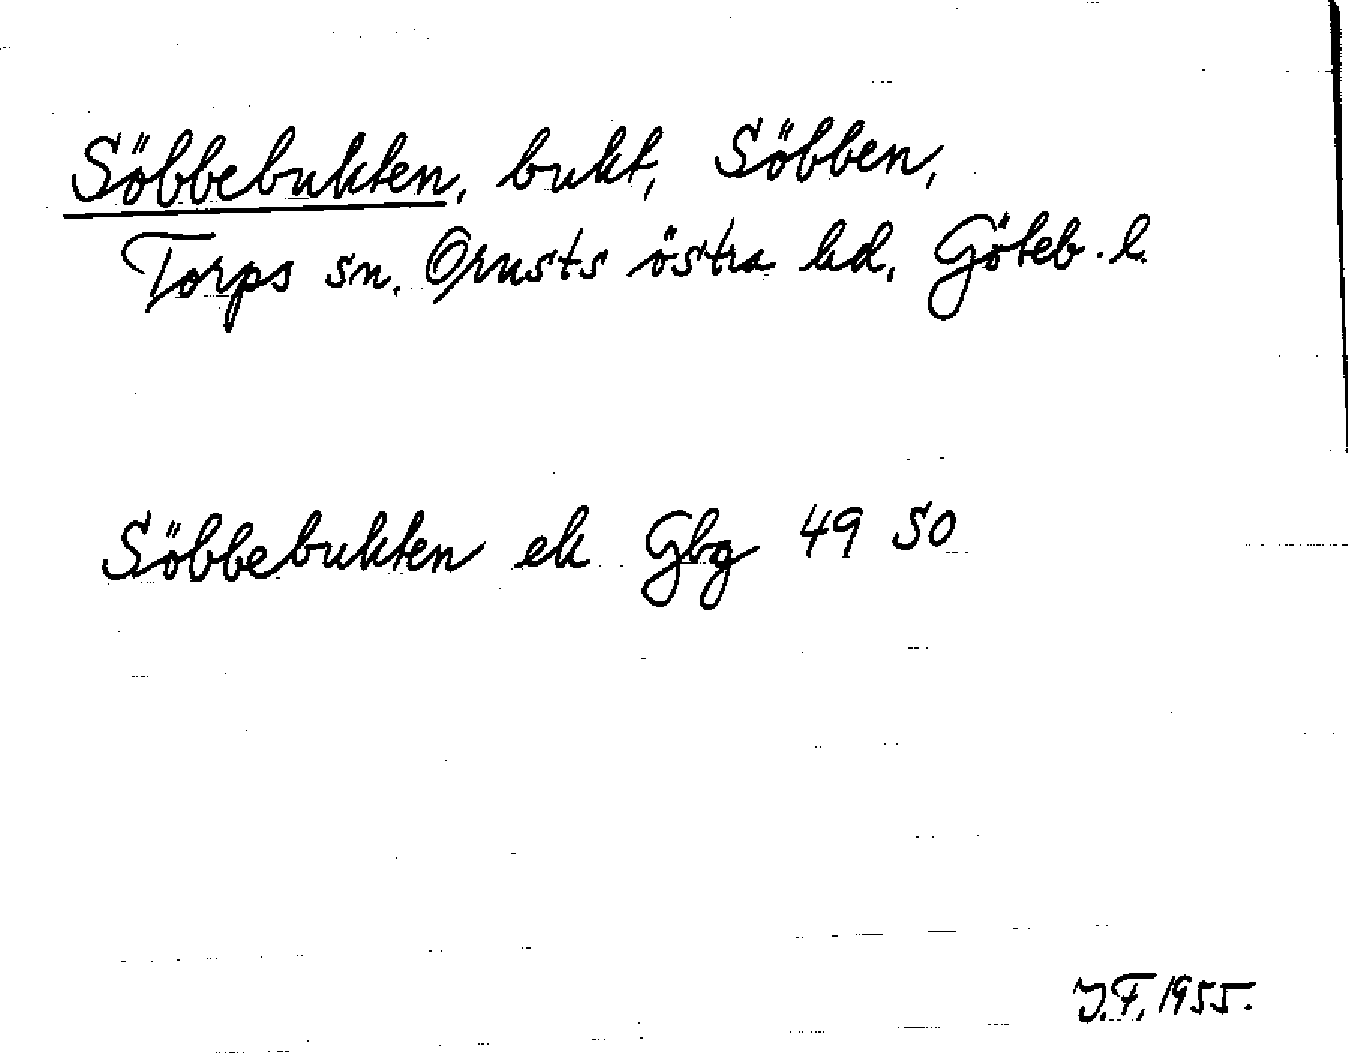 Söbbebukten, bukt, Söbben,
Torps sn. Orusts östra hd. Göteb. l.
Söbbebukten ek Gbg 49 SO
J.F. 1955.